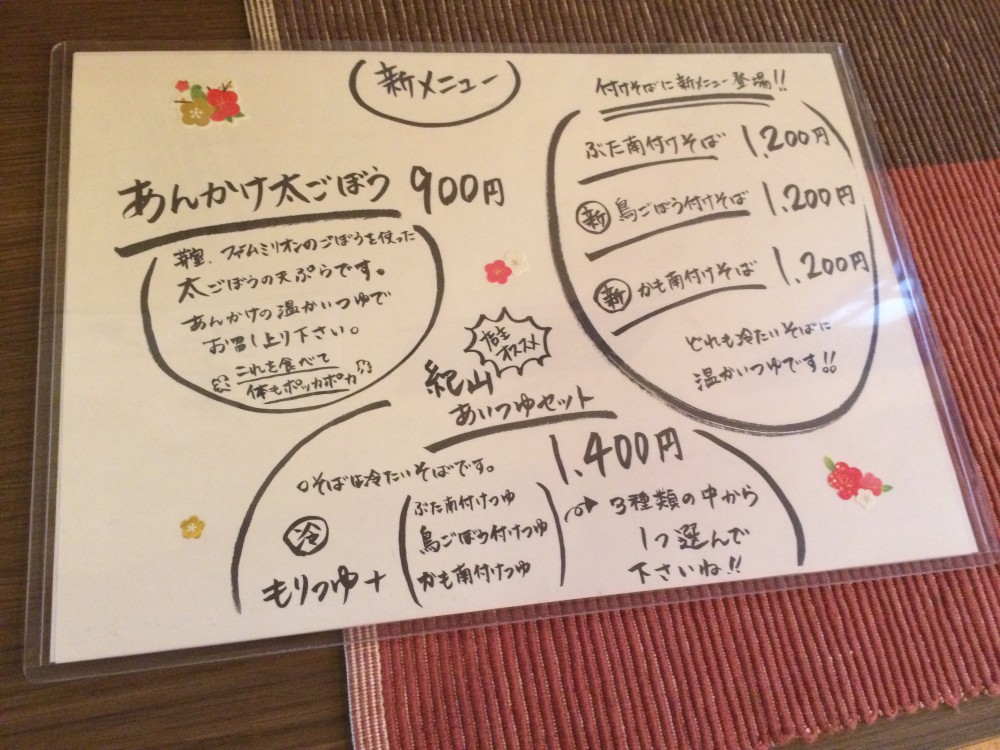 新メニュー
あんかけ太ごぼう 900円
芽室、ファムミリオンのごぼうを使った
太ごぼうの天ぷらです。
あんかけの温かいつゆで
お召し上り下さい。
これを食べて
体もポッカポカ
付けそばに新メニュー登場!!
ぶた南付けそば 1,200円
新 鳥ごぼう付けそば 1,200円
新 かも南付けそば 1,200円
どれも冷たいそばに
温かいつゆです!!
店主
オススメ
紀山
あいつゆセット
1,400円
○そばは冷たいそばです。
冷
もりつゆ+
ぶた南付けつゆ
鳥ごぼう付けつゆ
かも南付けつゆ
3種類の中から
1つ選んで
下さいね!!